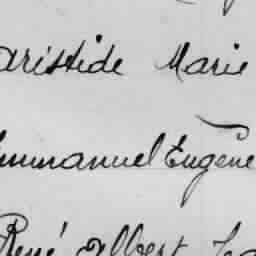 Aristide Marie
Emmanuel Eugène
René Albert